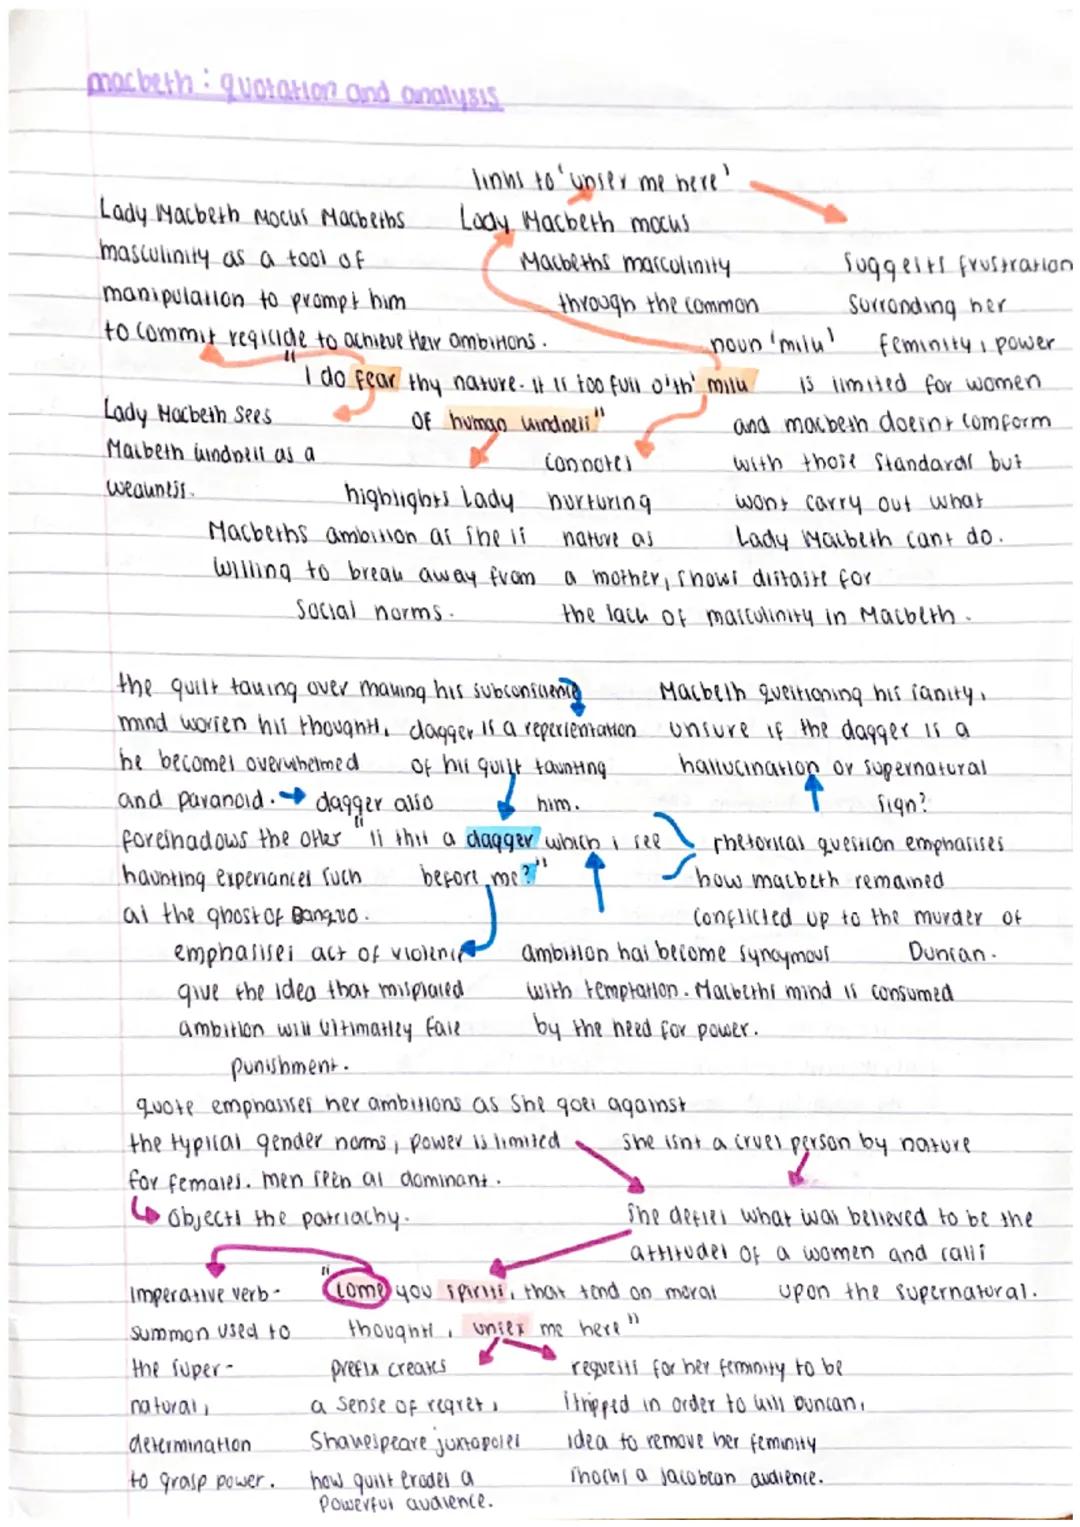 macbeth : quotation and analysis
links to 'unsex me here'
Lady Macbeth mocks Macbeths
masculinity as a tool of
manipulation to prompt him
to commit regicide to achieve their ambitions.
Lady Macbeth mocks
Macbeths masculinity
through the common
noun 'milk'
suggests frustration
surronding her
feminity, power
is limited for women
and macbeth doesnt comform
with those standards but
wont carry out what
Lady Macbeth cant do.
"I do fear thy nature. it is too full o'th' milk
of human kindness"
Lady Macbeth sees
Macbeth kindness as a
weakness.
highlights Lady
Macbeths ambition as she is
willing to break away from
social norms.
connotes
nurturing
nature as
a mother, shows distaste for
the lack of masculinity in Macbeth.
the guilt taking over making his subconscience
mind worsen his thoughts,
he becomes overwhelmed
and paranoid.
dagger is a repersentation
of his guilt taunting
him.
Macbeth questioning his sanity,
unsure if the dagger is a
hallucination or supernatural
sign?
dagger also
foreshadows the other
haunting experiances such
as the ghost of Banquo.
"is this a dagger which i see
before me?"
rhetorical question emphasises
how macbeth remained
conflicted up to the murder of
Duncan.
emphasises act of violence
give the idea that misplaced
ambition will ultimatley face
punishment.
ambition has become synoymous
with temptation. Macbeths mind is consumed
by the need for power.
quote emphasises her ambitions as she goes against
the typical gender noms, power is limited
for females. men seen as dominant.
objects the patriachy.
she isnt a cruel person by nature
she defies what was believed to be the
attitudes of a women and calls
upon the supernatural.
"come you spirits, that tend on moral
thoughts, unsex me here"
Imperative verb-
summon used to
the super-
natural,
determination
to grasp power.
prefix creates
a sense of regret,
Shakespeare juxtaposes
how guilt erodes a
powerful audience.
requests for her feminity to be
stripped in order to kill Duncan,
idea to remove her feminity
shocks a Jacobean audience.